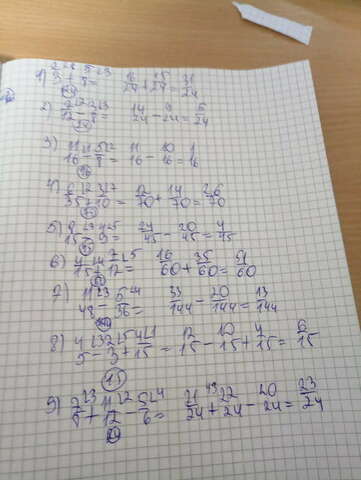 1) 2/3 + 5/8 = 16/24 + 15/24 = 31/24
2) 7/12 - 3/8 = 14/24 - 9/24 = 5/24
3) 11/16 - 5/8 = 11/16 - 10/16 = 1/16
4) 6/35 + 2/10 = 12/70 + 14/70 = 26/70
5) 8/15 - 4/9 = 24/45 - 20/45 = 4/45
6) 4/15 + 7/12 = 16/60 + 35/60 = 51/60
7) 11/48 - 5/36 = 33/144 - 20/144 = 13/144
8) 4/5 - 2/3 + 4/15 = 12/15 - 10/15 + 4/15 = 6/15
9) 7/8 + 11/12 - 5/6 = 21/24 + 22/24 - 20/24 = 23/24